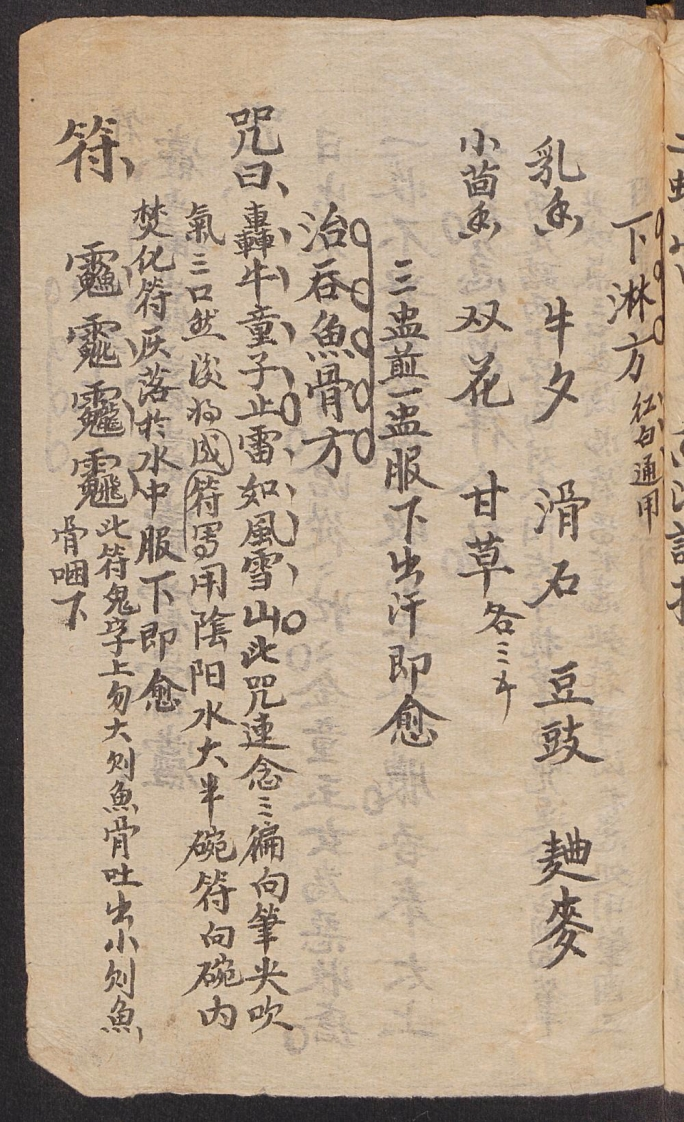 下淋方 紅白通用
乳香 牛夕 滑石 豆豉 麯麥
小茴香 双花 甘草各三
三盅煎一盅服下出汗即愈
治吞魚骨方
咒曰轟牛童子止雷如風雪山此咒連念三徧向筆尖吹
氣三口然後將符寫用陰阳水大半碗符向碗內
焚化符灰落於水中服下即愈
符
此符鬼字上勿大则魚骨吐出小则魚
骨咽下